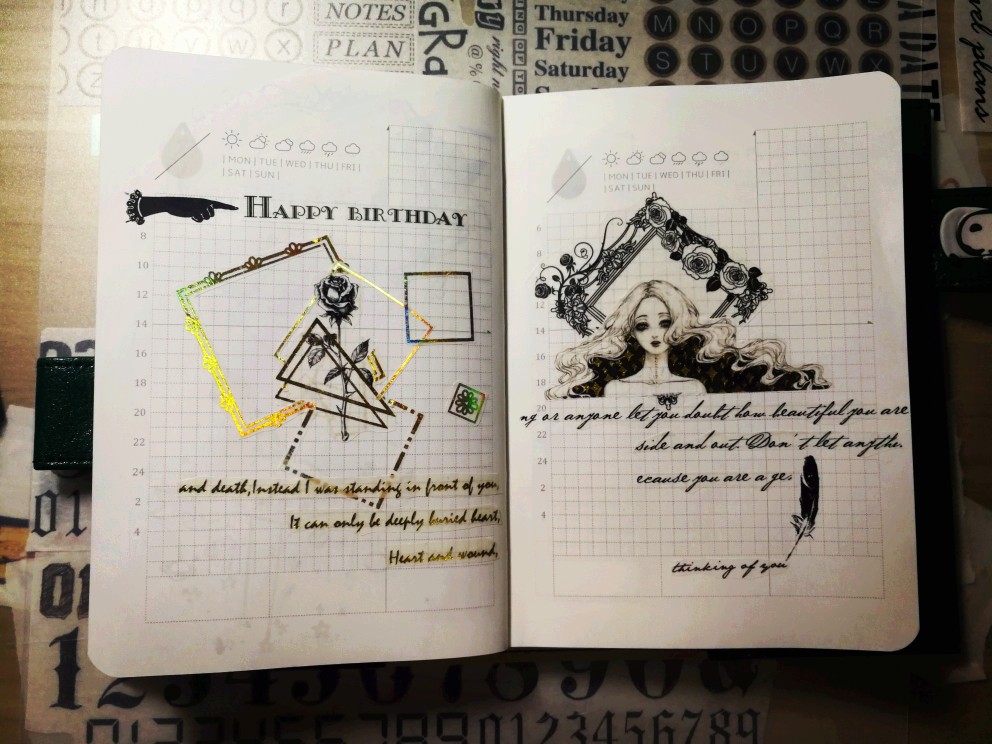 NOTES
PLAN
Thursday
Friday
Saturday
M N O P Q R
S T U V W X
| MON | TUE | WED | THU | FRI |
| SAT | SUN |
HAPPY BIRTHDAY
8
10
12
14
16
18
20
22
24
2
4
and death,Instead I was standing in front of you,
It can only be deeply buried heart,
Heart and wound,
| MON | TUE | WED | THU | FRI |
| SAT | SUN |
6
8
10
12
14
16
18
20
22
24
2
4
ng or anyone let you doubt how beautiful you are
side and out. Don't let anythi
ecause you are a ge
thinking of you
1234567890
0123456789